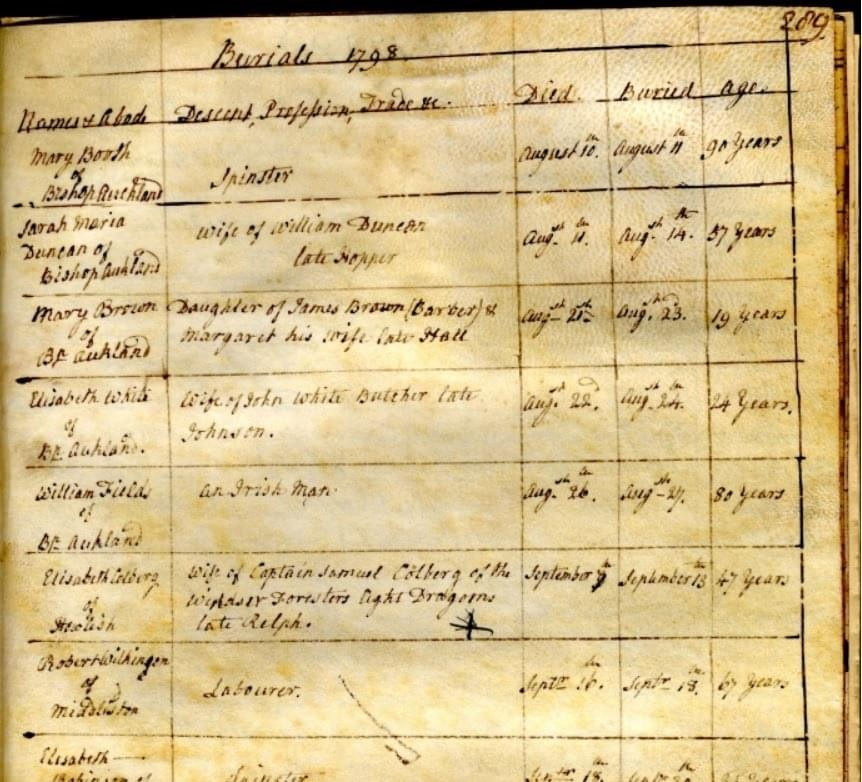 289
Burials 1798.
Names & Abode Descent, Profession, Trade &c. Died. Buried Age.
Mary Booth
of
Bishop Auckland
Spinster
August 10.th August 11th 90 Years
Sarah Maria
Duncan of
Bishop Aukland
Wife of William Duncan
late Hopper
Aug.st 11.th Aug.st 14.th 57 Years
Mary Brown
of
Bp. Aukland
Daughter of James Brown (Barber) &
Margaret his wife late Hall
Aug.st 21st Aug.st 23.d 19 Years
Elisabeth White
of
Bp. Aukland.
Wife of John White Butcher late
Johnson.
Aug.st 22.d Aug.st 24.th 24 Years.
William Fields
of
Bp. Aukland
an Irish Man
Aug.st 26.th Augst 27. 80 Years
Elisabeth Colberg
of
Howlish
Wife of Captain Samuel Colberg of the
Windsor Foresters light Dragoons
late Relph.
September 9th September 13 47 Years
Robert Wilkinson
of
Middleston
Labourer.
Septr 16.th Septr 18.th 67 Years
Elisabeth
Robinson of
Spinster
Septr 18. Septr